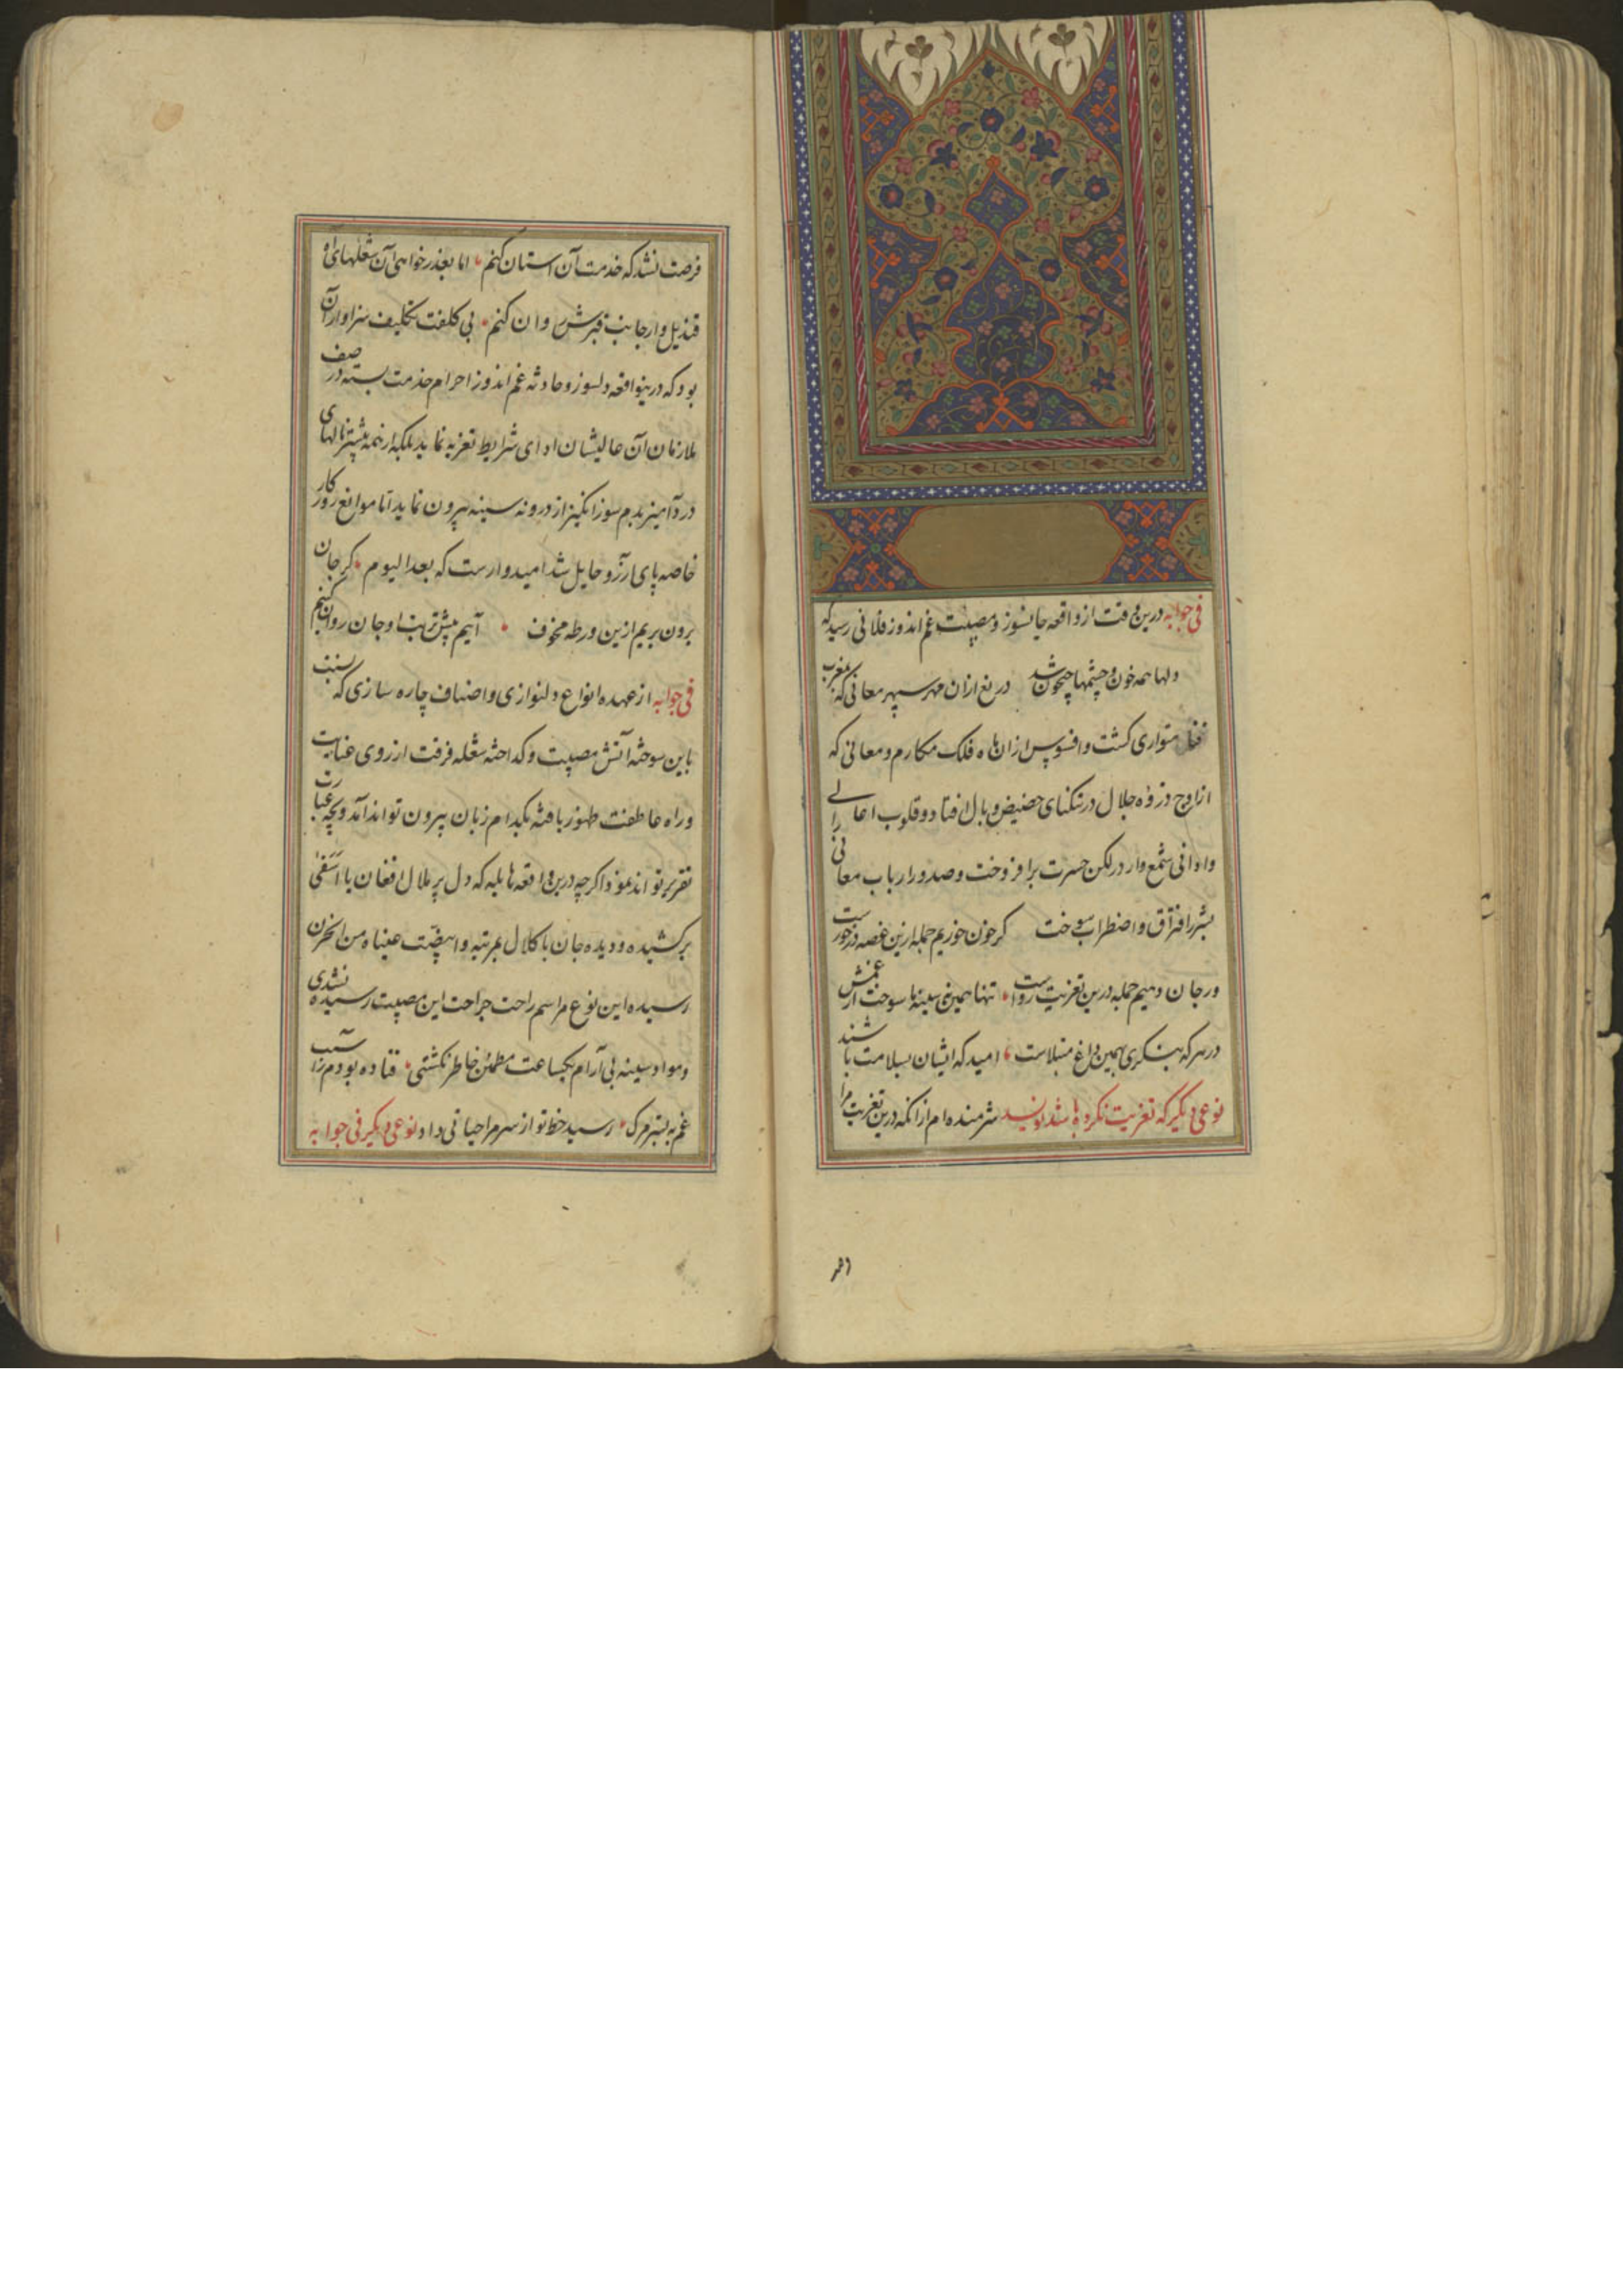 فی جوابه درین وقت از واقعه جانسوز و مصیبت غم اندوز فلانی رسید که
دلها همه خون و چشمها جیحون شد دریغ ازان مهر سپهر معانی که بمغرب
فنا متواری کشت و افسوس ازان ماه فلک مکارم و معالی که
از اوج ذروه جلال در تنکنای حضیض وبال افتاد و قلوب اعالی
و ادانی شمع وار در لکن حسرت برافروخت و صدور ارباب معانی را
بشرر افتراق و اضطراب سوخت کر خون خوریم جمله ازین غصه در خورست
ور جان دهیم جمله درین تعزیت رواست تنها همین نه سینه ما سوخت از غمش
در هر که بنکری بهمین داغ مبتلاست امید که ایشان بسلامت باشند
نوعی دیکر که تعزیت نکرده باشد نویسد شرمنده ام از آنکه درین تعزیت مرا
فرصت نشد که خدمت آن استان کنم اما بعذرخواهی آن شعلهای آه
قندیل وار جانب قبرش روان کنم بی کلفت تکلیف سزاوار آن
بود که درینواقعه دلسوز و حادثه غم اندوز احرام خدمت بسته در صف
ملازمان آن عالیشان ادای شرایط تعزیه نماید بلکه از همه بیشتر نالهای
دردآمیز بدم سوز انکیز از درونه سینه بیرون نماید اما موانع روزکار
خاصه پای ارزو حایل شد امیدوارست که بعد الیوم کر جان
برون بریم ازین ورطه مخوف آییم پیش تربت او جان روان کنیم
فی جوابه از عهده انواع دلنوازی و اصناف چاره سازی که نسبت
باین سوخته آتش مصیبت و کداخته شعله فرقت از روی عنایت
و راه عاطفت ظهور یافته بکدام زبان بیرون تواند آمد و بچه عبارت
تقریر تواند نمود اکرچه درین واقعه هایله که دل پر ملال افغان یا اسفی
برکشیده و دیده جان با کلال بمرتبه وابیضت عیناه من الحزن
رسیده این نوع مراسم راحت جراحت این مصیبت رسیده نشدی
و مواد سینه بی آرام یکساعت مطمئن خاطر نکشتی فتاده بودم از آسیب
غم به بستر مرک رسید خط تو از سر مرا حیاتی داد نوعی دیکر فی جوابه